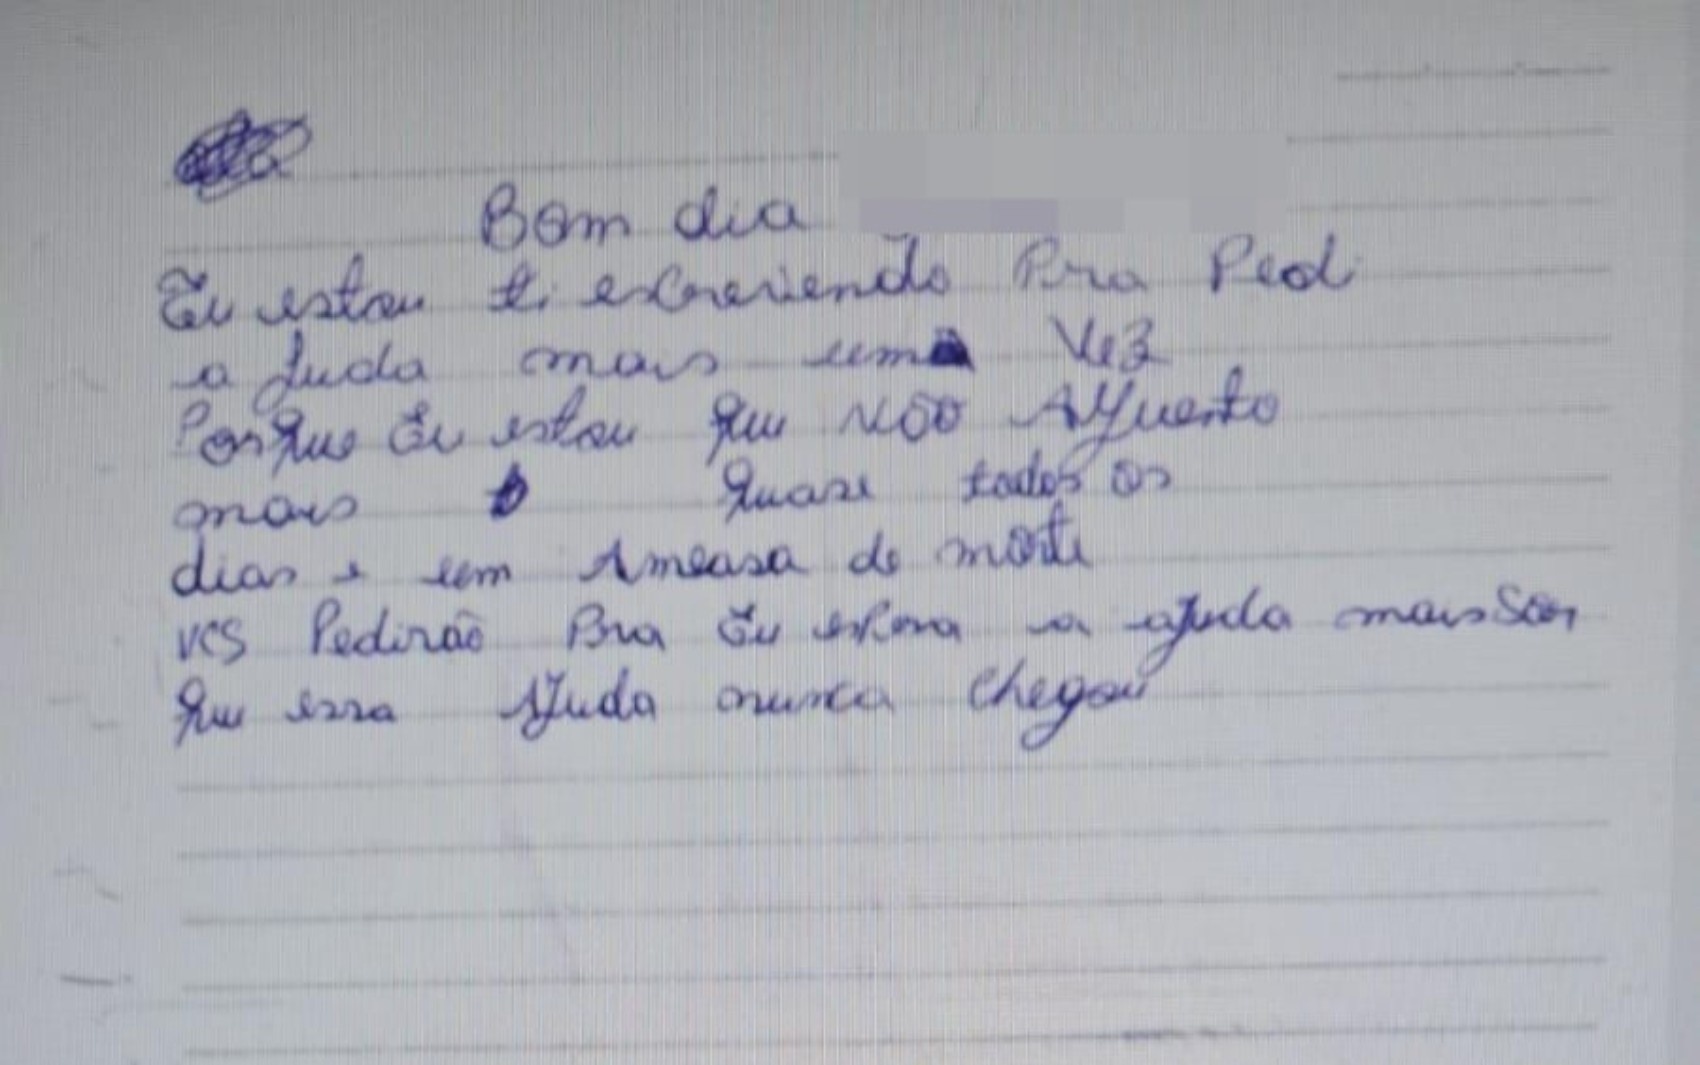 Bom dia
Eu estou ti escrevendo Pra Pedi
a Juda mais uma Vez
Porque Eu estou que não Aguento
mais quase todos os
dias e um Ameasa de morte
vcs Pedirão Pra Eu espera a ajuda mais Sou
que essa Ajuda nunca chegou